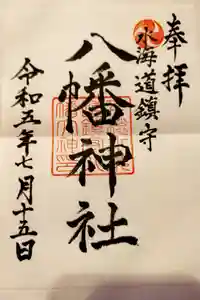 奉拝
水海道鎮守
八幡神社
令和五年七月十五日